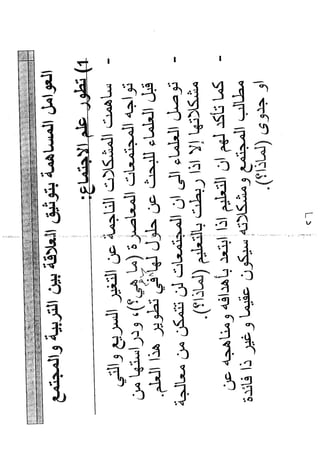 العوامل المساهمة بتوثيق العلاقة بين التربية والمجتمع
1) تطور علم الاجتماع:
- ساهمت المشكلات الناجمة عن التغير السريع والتي
تواجه المجتمعات المعاصرة (ما هي؟)، ودراستها من
قبل العلماء للبحث عن حلول لها في تطوير هذا العلم.
- توصل العلماء الى ان المجتمعات لن تتمكن من معالجة
مشكلاتها إلا اذا ربطت بالتعليم (لماذا؟).
- كما تأكد لهم ان التعليم اذا ابتعد بأهدافه ومناهجه عن
مطالب المجتمع ومشكلاته سيكون عقيما وغير ذا فائدة
او جدوى (لماذا؟).
٢٦